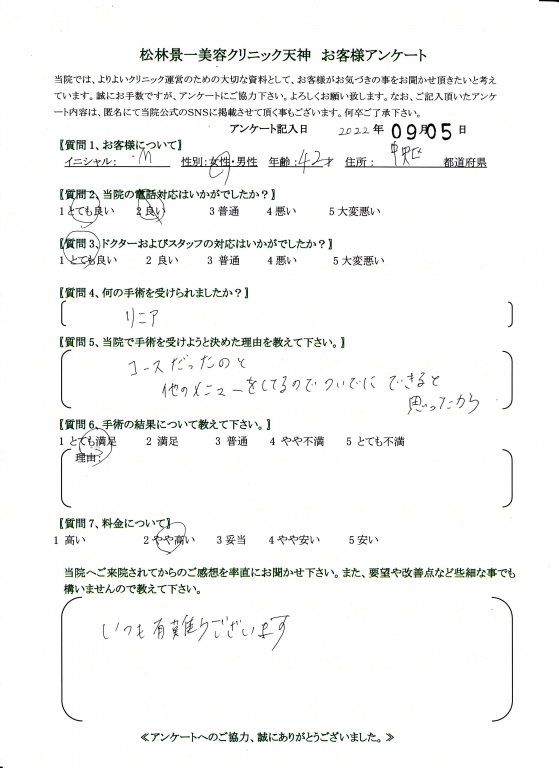 松林景一美容クリニック天神 お客様アンケート
当院では、よりよいクリニック運営のための大切な資料として、お客様がお気づきの事をお聞かせ頂きたいと考え
ています。誠にお手数ですが、アンケートにご協力下さい。よろしくお願い致します。なお、ご記入頂いたアンケ
ート内容は、匿名にて当院公式のSNSに掲載させて頂く事もございます。何卒ご了承下さい。
アンケート記入日 2022年 09月 05日
【質問1、お客様について】
イニシャル： M 性別：女性・男性 年齢：42才 住所： 中央区 都道府県
【質問2、当院の電話対応はいかがでしたか？】
1 とても良い 2 良い 3 普通 4 悪い 5 大変悪い
【質問3、ドクターおよびスタッフの対応はいかがでしたか？】
1 とても良い 2 良い 3 普通 4 悪い 5 大変悪い
【質問4、何の手術を受けられましたか？】
リニア
【質問5、当院で手術を受けようと決めた理由を教えて下さい。】
コースだったのと
他のメニューをしてるのでついでにできると
思ったから
【質問6、手術の結果について教えて下さい。】
1 とても満足 2 満足 3 普通 4 やや不満 5 とても不満
理由：
【質問7、料金について】
1 高い 2 やや高い 3 妥当 4 やや安い 5 安い
当院へご来院されてからのご感想を率直にお聞かせ下さい。また、要望や改善点など些細な事でも
構いませんので教えて下さい。
いつも有難うございます
≪アンケートへのご協力、誠にありがとうございました。≫